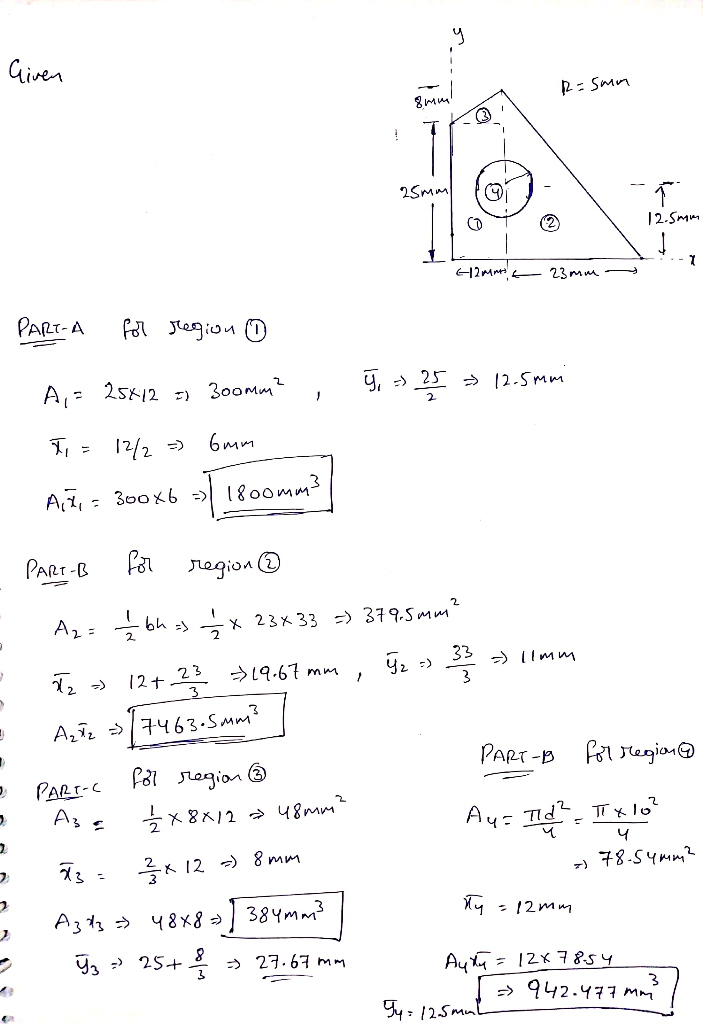 Given
y
R = 5mm
8mm
③
25mm
④
12.5mm
①
②
x
12mm
23mm
PART-A for region ①
A₁ = 25×12 ⇒ 300mm² , ȳ₁ ⇒ 25/2 ⇒ 12.5mm
x̄₁ = 12/2 ⇒ 6mm
A₁x̄₁ = 300×6 ⇒ 1800mm³
PART-B for region ②
A₂ = 1/2 bh ⇒ 1/2 × 23×33 ⇒ 379.5mm²
x̄₂ ⇒ 12 + 23/3 ⇒ 19.67 mm , ȳ₂ ⇒ 33/3 ⇒ 11mm
A₂x̄₂ ⇒ 7463.5mm³
PART-C for region ③
A₃ = 1/2 × 8×12 ⇒ 48mm²
x̄₃ = 2/3 × 12 ⇒ 8mm
A₃x̄₃ ⇒ 48×8 ⇒ 384mm³
ȳ₃ ⇒ 25 + 8/3 ⇒ 27.67 mm
PART-D for region ④
A₄ = πd²/4 = π×10²/4
⇒ 78.54mm²
x̄₄ = 12mm
A₄x̄₄ = 12×78.54
⇒ 942.477 mm³
ȳ₄ = 12.5mm